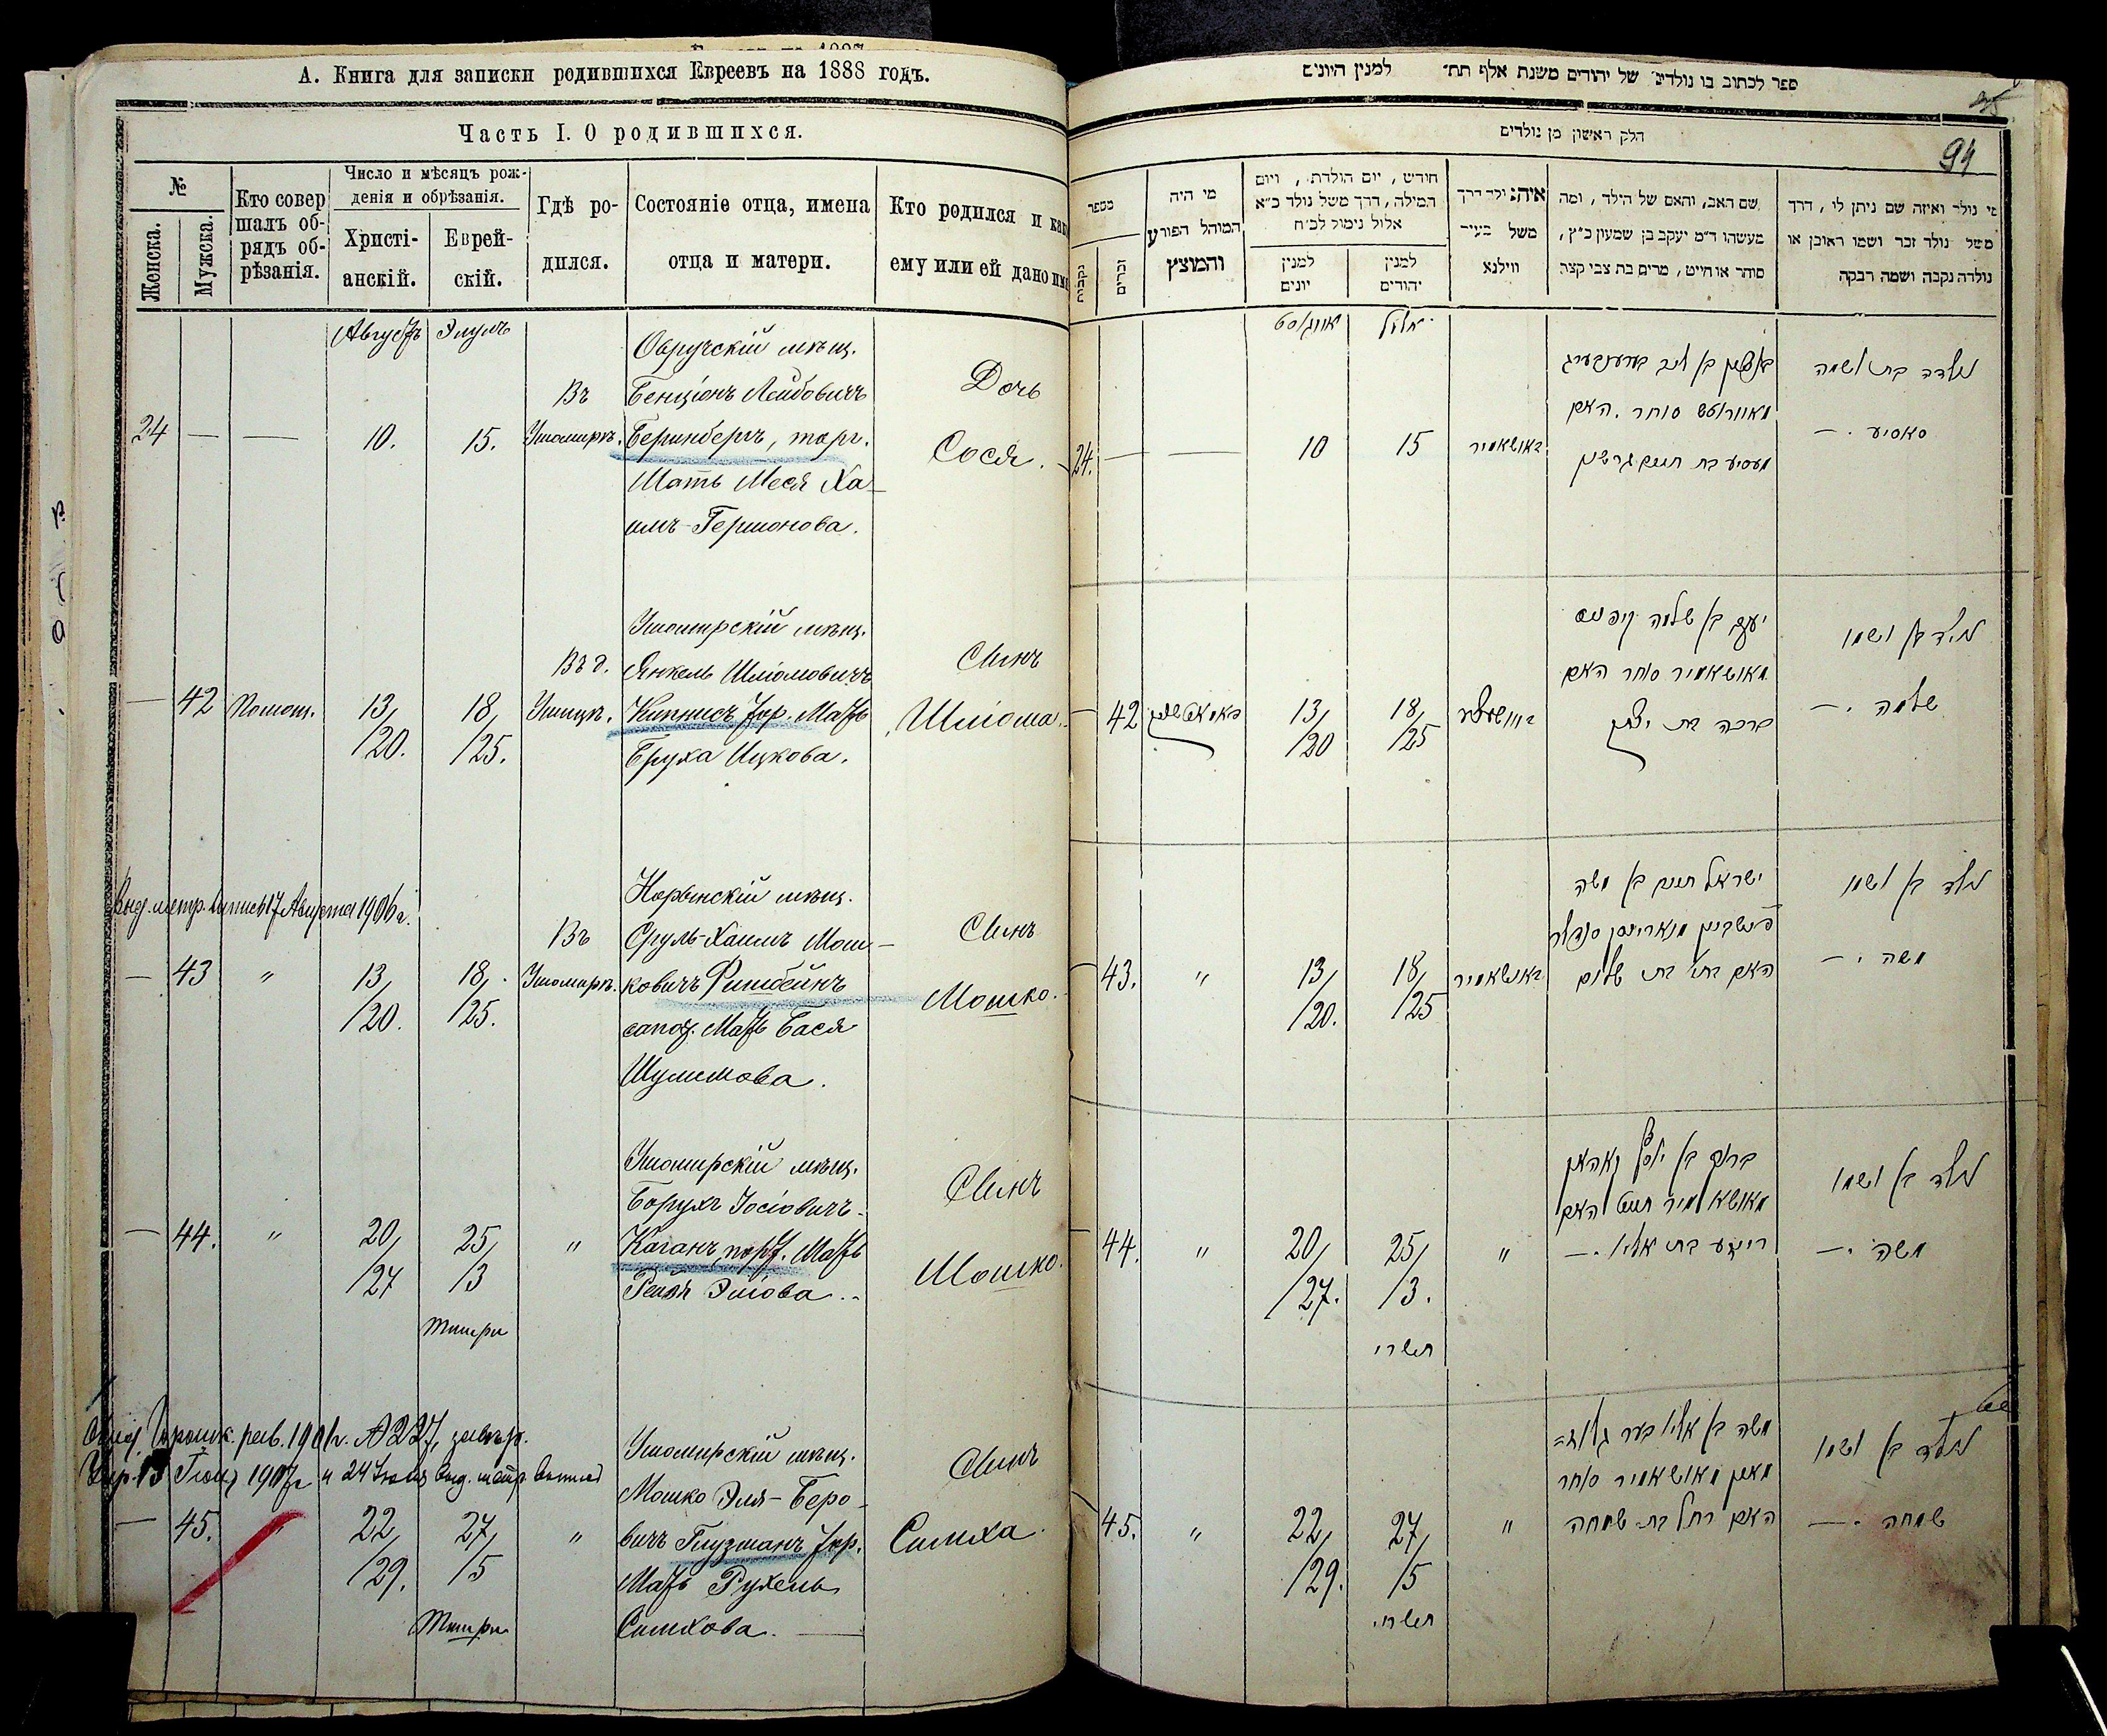 А. Книга для записки родившихся Евреевъ на 1888 годъ.
Часть I. О родившихся.
№
Женска.
Мужска.
Кто совер
шалъ об-
рядъ об-
рѣзанія.
Число и мѣсяцъ рож-
денія и обрѣзанія.
Христі-
анскій.
Еврей-
скій.
Гдѣ ро-
дился.
Состояніе отца, имена
отца и матери.
Кто родился и как
ему или ей дано им
Августъ Элулъ
24 — — 10. 15.
Въ
Ушомирѣ.
Овручскій мѣщ.
Бенціонъ Лейбовичъ
Беринбергъ, торг.
Мать Меся Ха-
имъ-Гершонова.
Дочь
Сося.
— 42 Помощ. 13/20. 18/25.
Въ д.
Ушомирскій мѣщ.
Янкель Шліомовичъ
Кипнисъ, тор. Мать
Бруха Ицкова.
Сынъ
Шліома.
Выд. метр. выпись 17 Августа 1906 г.
— 43 " 13/20. 18/25.
Въ
Ушомирѣ.
Норынскій мѣщ.
Сруль-Хаимъ Мош-
ковичъ Фишбейнъ
сапож. Мать Бася
Шулимова.
Сынъ
Мошко.
— 44. " 20/27 25/3
Тишри
"
Ушомирскій мѣщ.
Борухъ Іосіовичъ
Каганъ, порт. Мать
Эліова.
Сынъ
Мошко.
1907 г. и 24 Іюня выд. метр. выпись
— 45. " 22/29. 27/5
Тишри
"
Ушомирскій мѣщ.
Мошко Эля-Беро-
вичъ Глузманъ, тор.
Мать Рухель
Симхова.
Сынъ
Симха.
ספר לכתוב בו נולדים של יהודים משנת אלף תת״ למנין היונים
חלק ראשון מן נולדים
94
מספר
נקבות
זכרים
מי היה
המוהל הפורע
והמוצץ
חודש, יום הולדת, ויום
המילה, דרך משל נולד כ״א
אלול נימול לכ״ח
למנין
יונים
למנין
יהודים
איה נולד דרך
משל בעיר
ווילנא
שם האב, והאם של הילד, ומה
מעשהו ד״מ יעקב בן שמעון כ״ץ,
סוחר או חייט, מרים בת צבי קצב
מי נולד ואיזה שם ניתן לו, דרך
משל נולד זכר ושמו ראובן או
נולדה נקבה ושמה רבקה
אווגוסט אלול
24. — — 10 15
באושאמיר
סוחר. האם
מעסיע בת חיים גרשון
נולדה בת ושמה
סאסיע. —
— 42 13/20 18/25
יעקב בן שלמה קיפניס
מאושאמיר סוחר האם
ברכה בת יצחק
נולד בן ושמו
שלמה. —
43. " 13/20. 18/25
באושאמיר
ישראל חיים בן משה
פישביין מנארינסק סנדלר
האם בתי׳ בת שלום
נולד בן ושמו
משה. —
44. " 20/27. 25/3.
תשרי
"
ברוך בן יוסף קאהאן
מאושאמיר חייט האם
בת אלי׳. —
נולד בן ושמו
משה. —
45. " 22/29. 27/5
תשרי.
"
משה בן אלי׳ בער גלוז=
מאן מאושאמיר סוחר
האם רחל בת שמחה
נולד בן ושמו
שמחה. —